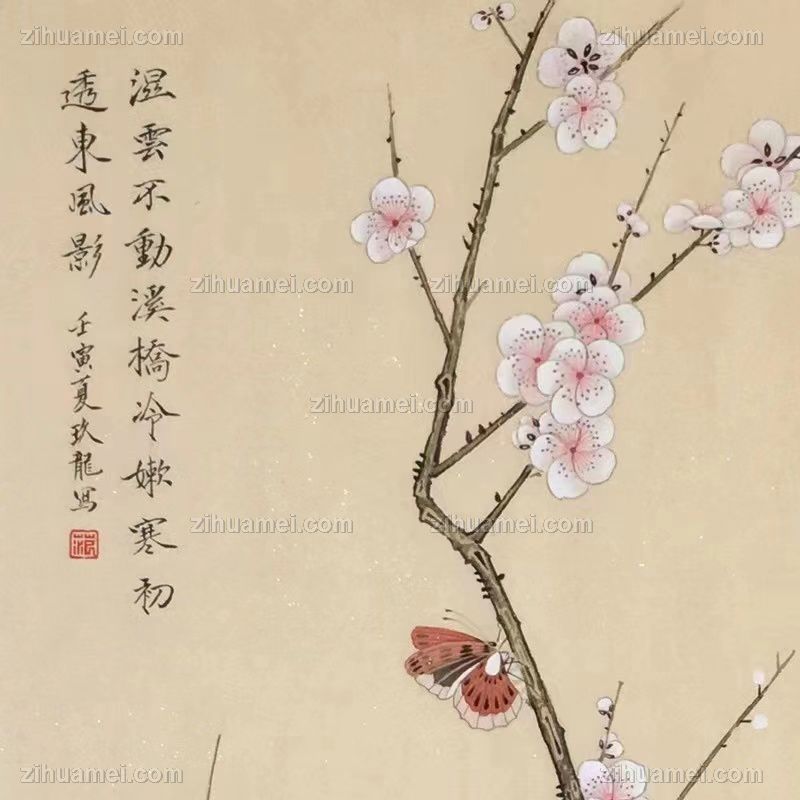 湿雲不動溪橋冷嫰寒初
透東風影
壬寅夏玖龍寫
zihuamei.com
zihuamei.com
zihuamei.com
zihuamei.com
zihuamei.com
zihuamei.com
zihuamei.com
zihuamei.com
zihuamei.com